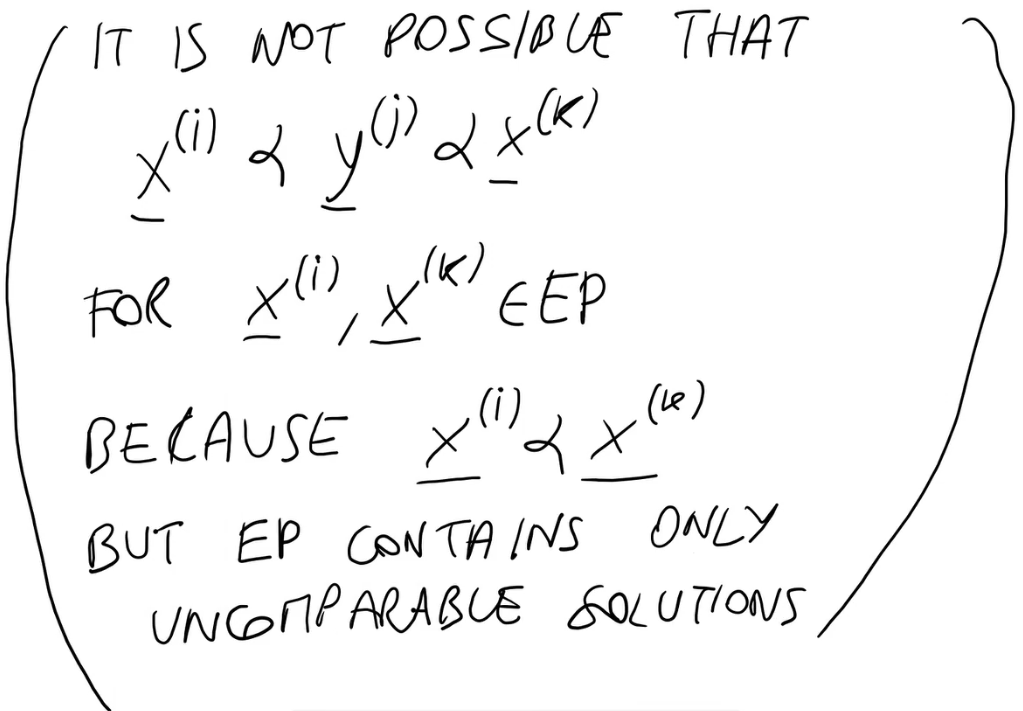 (IT IS NOT POSSIBLE THAT
x^(i) ∝ y^(j) ∝ x^(k)
FOR x^(i), x^(k) ∈ EP
BECAUSE x^(i) ∝ x^(k)
BUT EP CONTAINS ONLY
UNCOMPARABLE SOLUTIONS)